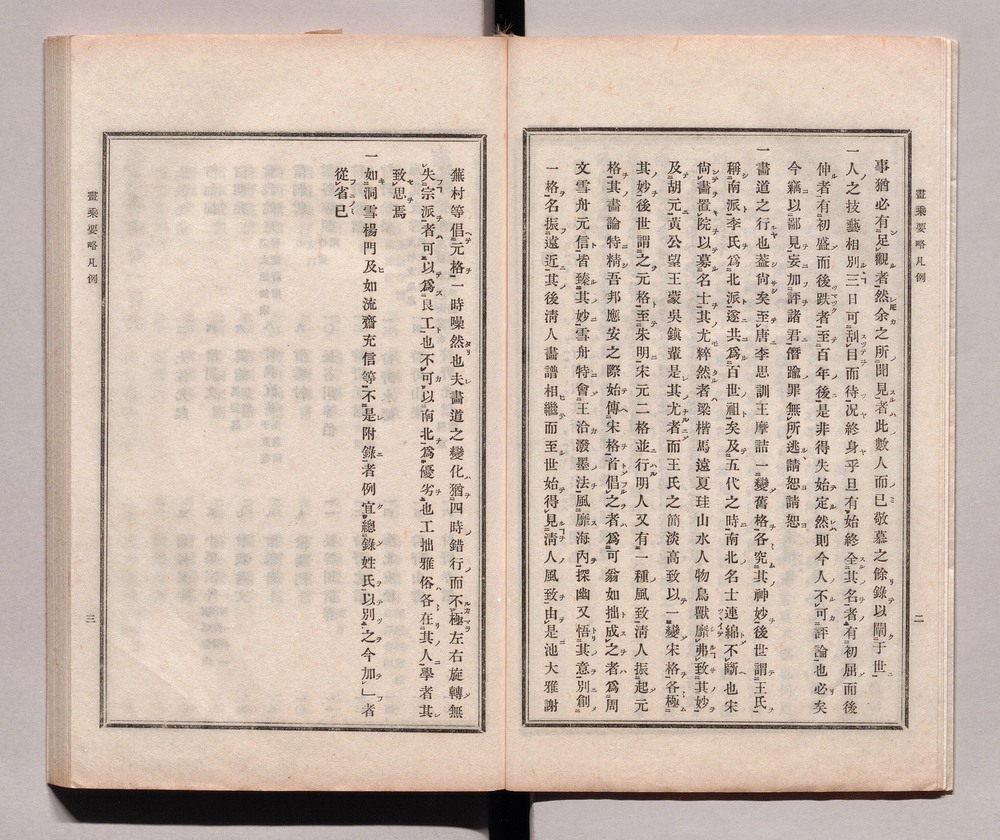 畫乘要略凡例
二
事猶必有足觀者然余之所聞見者此數人而已敬慕之餘錄以關于世
一人之技藝相別三日可刮目而待况終身乎且有始終全其名者有初屈而後
伸者有初盛而後跌者至百年後是非得失始定然則今人不可評論也必矣
今竊以鄙見妄加評諸君僭踰罪無所逃請恕請恕
一畫道之行也葢尙矣至唐李思訓王摩詰一變舊格各究其神妙後世謂王氏
稱南派李氏爲北派遂共爲百世祖矣及五代之時南北名士連綿不斷也宋
尙畫置院以募名士其尤粹然者梁楷馬遠夏珪山水人物鳥獸靡弗致其妙
及胡元黃公望王蒙吳鎭輩是其尤者而王氏之簡淡高致以一變宋格各極
其妙後世謂之元格至朱明宋元二格並行明人又有一種風致淸人振起元
格其畫論特精吾邦應安之際始傳宋格首倡之者爲可翁如拙成之者爲周
文雪舟元信皆臻其妙雪舟特會王洽潑墨法風靡海內探幽又悟其意別創
一格名振遠近其後淸人畫譜相繼而至世始得見淸人風致由是池大雅謝
蕪村等倡元格一時噪然也夫畫道之變化猶四時錯行而不極左右旋轉無
失宗派者可以爲良工也不可以南北爲優劣也工拙雅俗各在其人學者其
致思焉
一如洞雪楊門及如流齋充信等不是附錄者例宜總錄姓氏以別之今加」者
從省已
畫乘要略凡例
三